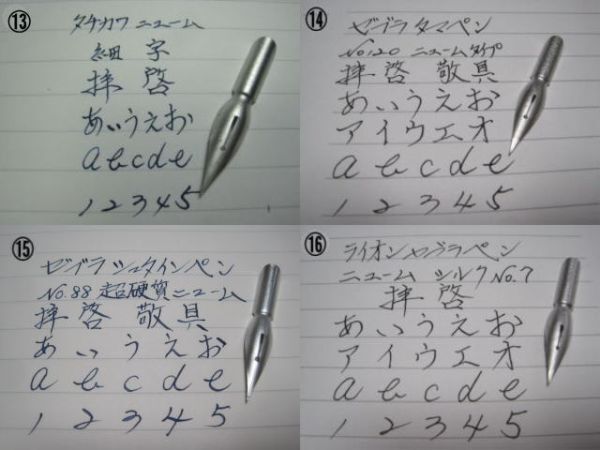 ⑬
タチカワ ニューム
細字
拝啓
あいうえお
a b c d e
1 2 3 4 5
⑭
ゼブラ タマペン
No.20 ニュームタイプ
拝啓 敬具
あいうえお
アイウエオ
a b c d e
1 2 3 4 5
⑮
ゼブラ シュタインペン
No.88 超硬質ニューム
拝啓 敬具
あいうえお
a b c d e
1 2 3 4 5
⑯
ライオン ゼブラペン
ニューム シルク No.7
拝啓
あいうえお
アイウエオ
a b c d e
1 2 3 4 5